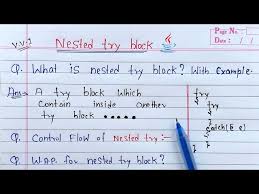 Page No.
Date / /
V.V.I Nested try block
Q. What is nested try block? With Example.
Ans: A try block which
contain inside another
try block .....
try
{
try
{
catch(E e)
}
}
Q. Control Flow of Nested try:-
Q. W.A.P. for nested try block?